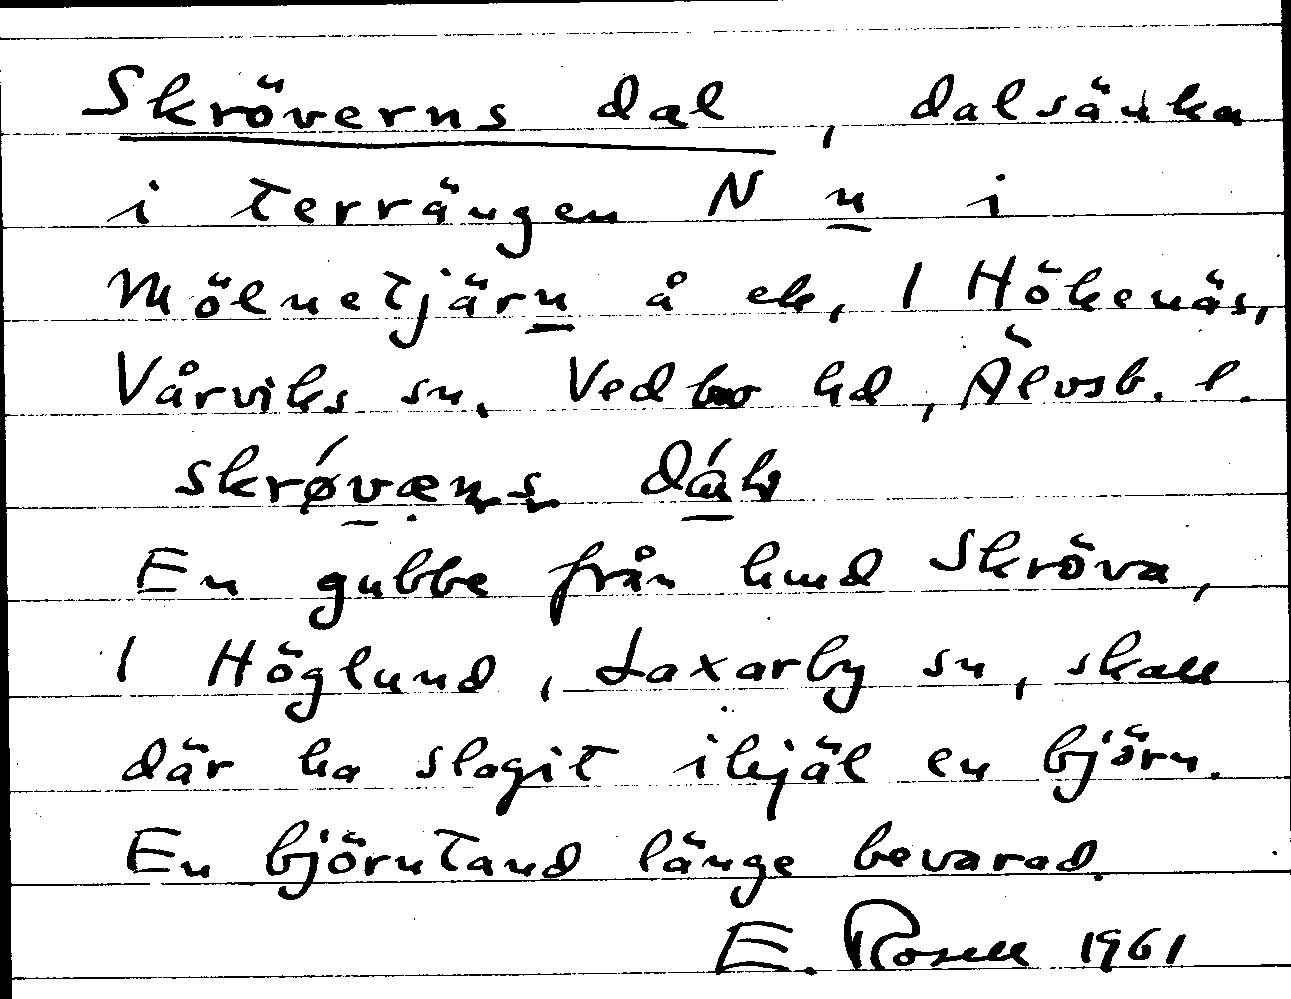 Skröverns dal, dalsänka
i terrängen N n i
Mölnetjärn å ek, 1 Hökenäs,
Vårviks sn. Vedbo hd, Älvsb. l.
skrǿvæns dáɫ
En gubbe från hmd Skröva,
1 Höglund, Laxarby sn, skall
där ha slagit ihjäl en björn.
En björntand länge bevarad.
E. Rosell 1961